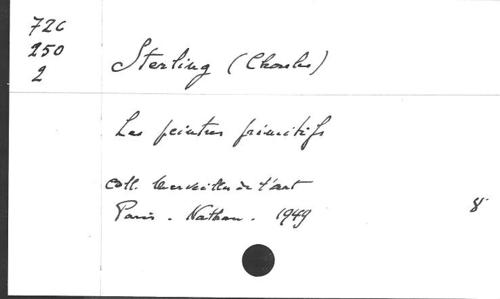 726
250
2
Sterling (Charles)
Les peintres primitifs
Coll. Merveilles de l'art
Paris - Nathan - 1949
8°